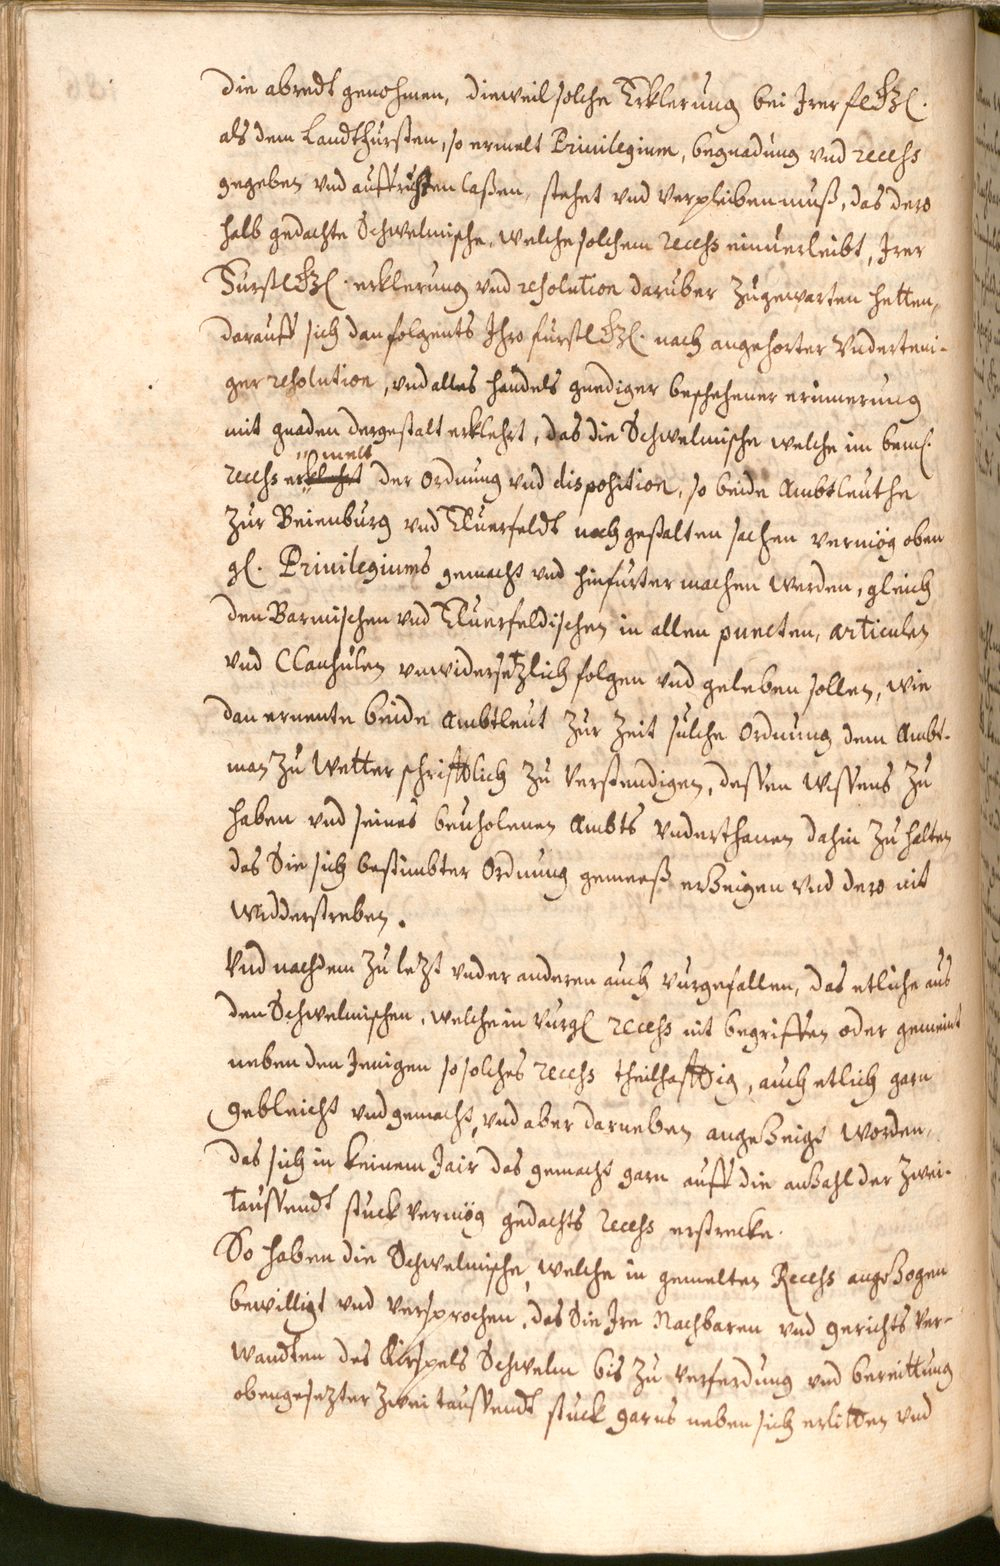 die abredt genohmen, dieweil solche Erklerung bei Irer f. G.
als dem Landtfursten, so ermelt Priuilegium, begnadung vnd recess
gegeben vnd auffrichten laßen, stehet vnd verpleiben muß, das dero
halb gedachte Schwelmische, welche solchem recess einuerleibt, Irer
Furstl. G. erklerung vnd resolution daruber zugewarten hetten,
darauff sich dan folgents Ihro furstl. G. nach angehorter Vnderteni-
ger resolution, vnd alles handels gnediger beschehener erinnerung
mit gnaden dergestalt erklehrt, das die Schwelmische welche im bem.
recess ermelt der Ordnung vnd disposition, so beide Ambtleuthe
zur Beienburg vnd Eluerfeldt nach gestalten sachen vermög oben
gl. Priuilegiums gemacht vnd hinfurter machen werden, gleich
den Barmischen vnd Eluerfeldischen in allen puncten, articulen
vnd Clausulen vnwidersetzlich folgen vnd geleben sollen, wie
dan ernente beide Ambtleut zur Zeit sulche Ordnung dem Ambt-
man zu Wetter schrifftlich zu verstendigen, dessen wissens zu
haben vnd seines beuholenen Ambts vnderthanen dahin zu halten
das Sie sich bestimbter Ordnung gemeeß erzeigen vnd dero nit
widderstreben.
Vnd nachdem zu letzt vnder anderen auch vurgefallen, das etliche aus
den Schwelmischen, welche in vurgl. recess nit begriffen oder gemeint
neben den Jenigen so solches recess theilhafftig, auch etlich garn
gebleicht vnd gemacht, vnd aber darneben angezeigt worden,
das sich in keinem Jair das gemacht garn auff die anzahl der zwei-
taussendt stuck vermög gedachts recess erstrecke.
So haben die Schwelmische, welche in gemelten Recess angezogen
bewilligt vnd versprochen, das Sie Ire Nachbaren vnd gerichts ver-
wandten des Kirspels Schwelm bis zu verferdung vnd bereittung
obengesetzter zwei taussendt stuck garns neben sich erlitten vnd